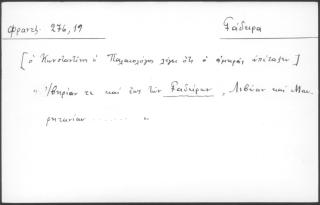 Φραντζ. 276,19 Γάδειρα
[ὁ Κωνσταντῖνος ὁ Παλαιολόγος λέγει ὅτι ὁ ἀμηρᾶς ὑπέταξεν]
" Ἰβηρίαν τε καὶ ἕως τῶν Γαδείρων, Λιβύαν καὶ Μαυ-
ριτανίαν ...... "